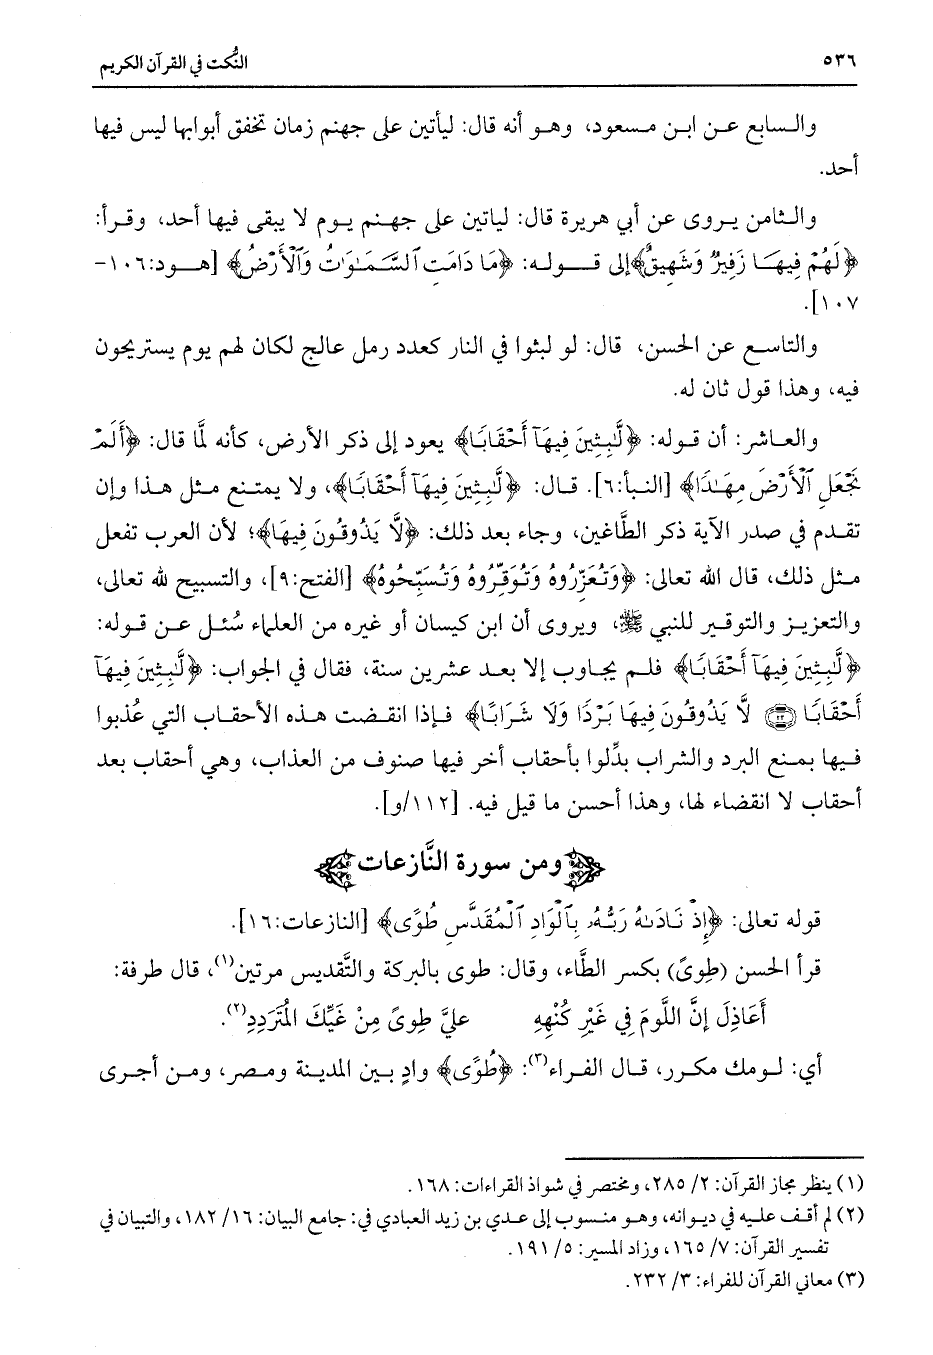 ٥٣٦ النُّكت في القرآن الكريم
والسابع عن ابن مسعود، وهو أنه قال: ليأتين على جهنم زمان تخفق أبوابها ليس فيها
أحد.
والثامن يروى عن أبي هريرة قال: لياتين على جهنم يوم لا يبقى فيها أحد، وقرأ:
﴿لَهُمْ فِيهَا زَفِيرٌ وَشَهِيقٌ﴾إلى قوله: ﴿مَا دَامَتِ ٱلسَّمَٰوَٰتُ وَٱلْأَرْضُ﴾ [هود:١٠٦-
١٠٧].
والتاسع عن الحسن، قال: لو لبثوا في النار كعدد رمل عالج لكان لهم يوم يستريحون
فيه، وهذا قول ثان له.
والعاشر: أن قوله: ﴿لَّٰبِثِينَ فِيهَآ أَحْقَابًا﴾ يعود إلى ذكر الأرض، كأنه لمَّا قال: ﴿أَلَمْ
نَجْعَلِ ٱلْأَرْضَ مِهَٰدًا﴾ [النبأ:٦]. قال: ﴿لَّٰبِثِينَ فِيهَآ أَحْقَابًا﴾، ولا يمتنع مثل هذا وإن
تقدم في صدر الآية ذكر الطَّاغين، وجاء بعد ذلك: ﴿لَّا يَذُوقُونَ فِيهَا﴾؛ لأن العرب تفعل
مثل ذلك، قال الله تعالى: ﴿وَتُعَزِّرُوهُ وَتُوَقِّرُوهُ وَتُسَبِّحُوهُ﴾ [الفتح:٩]، والتسبيح لله تعالى،
والتعزيز والتوقير للنبي ﷺ، ويروى أن ابن كيسان أو غيره من العلماء سُئل عن قوله:
﴿لَّٰبِثِينَ فِيهَآ أَحْقَابًا﴾ فلم يجاوب إلا بعد عشرين سنة، فقال في الجواب: ﴿لَّٰبِثِينَ فِيهَآ
أَحْقَابًا ۝٢٣ لَّا يَذُوقُونَ فِيهَا بَرْدًا وَلَا شَرَابًا﴾ فإذا انقضت هذه الأحقاب التي عُذبوا
فيها بمنع البرد والشراب بدِّلوا بأحقاب أخر فيها صنوف من العذاب، وهي أحقاب بعد
أحقاب لا انقضاء لها، وهذا أحسن ما قيل فيه. [١١٢/و].
ومن سورة النَّازعات
قوله تعالى: ﴿إِذْ نَادَىٰهُ رَبُّهُۥ بِٱلْوَادِ ٱلْمُقَدَّسِ طُوًى﴾ [النازعات:١٦].
قرأ الحسن (طِوىً) بكسر الطَّاء، وقال: طوى بالبركة والتَّقديس مرتين(١)، قال طرفة:
أَعَاذِلَ إنَّ اللَّومَ فِي غَيْرِ كُنْهِهِ عليَّ طِوىً مِنْ غَيِّكَ المُتَرَدِدِ(٢).
أي: لومك مكرر، قال الفراء(٣): ﴿طُوًى﴾ وادٍ بين المدينة ومصر، ومن أجرى
(١) ينظر مجاز القرآن: ٢/ ٢٨٥، ومختصر في شواذ القراءات: ١٦٨.
(٢) لم أقف عليه في ديوانه، وهو منسوب إلى عدي بن زيد العبادي في: جامع البيان: ١٦/ ١٨٢، والتبيان في
تفسير القرآن: ٧/ ١٦٥، وزاد المسير: ٥/ ١٩١.
(٣) معاني القرآن للفراء: ٣/ ٢٣٢.